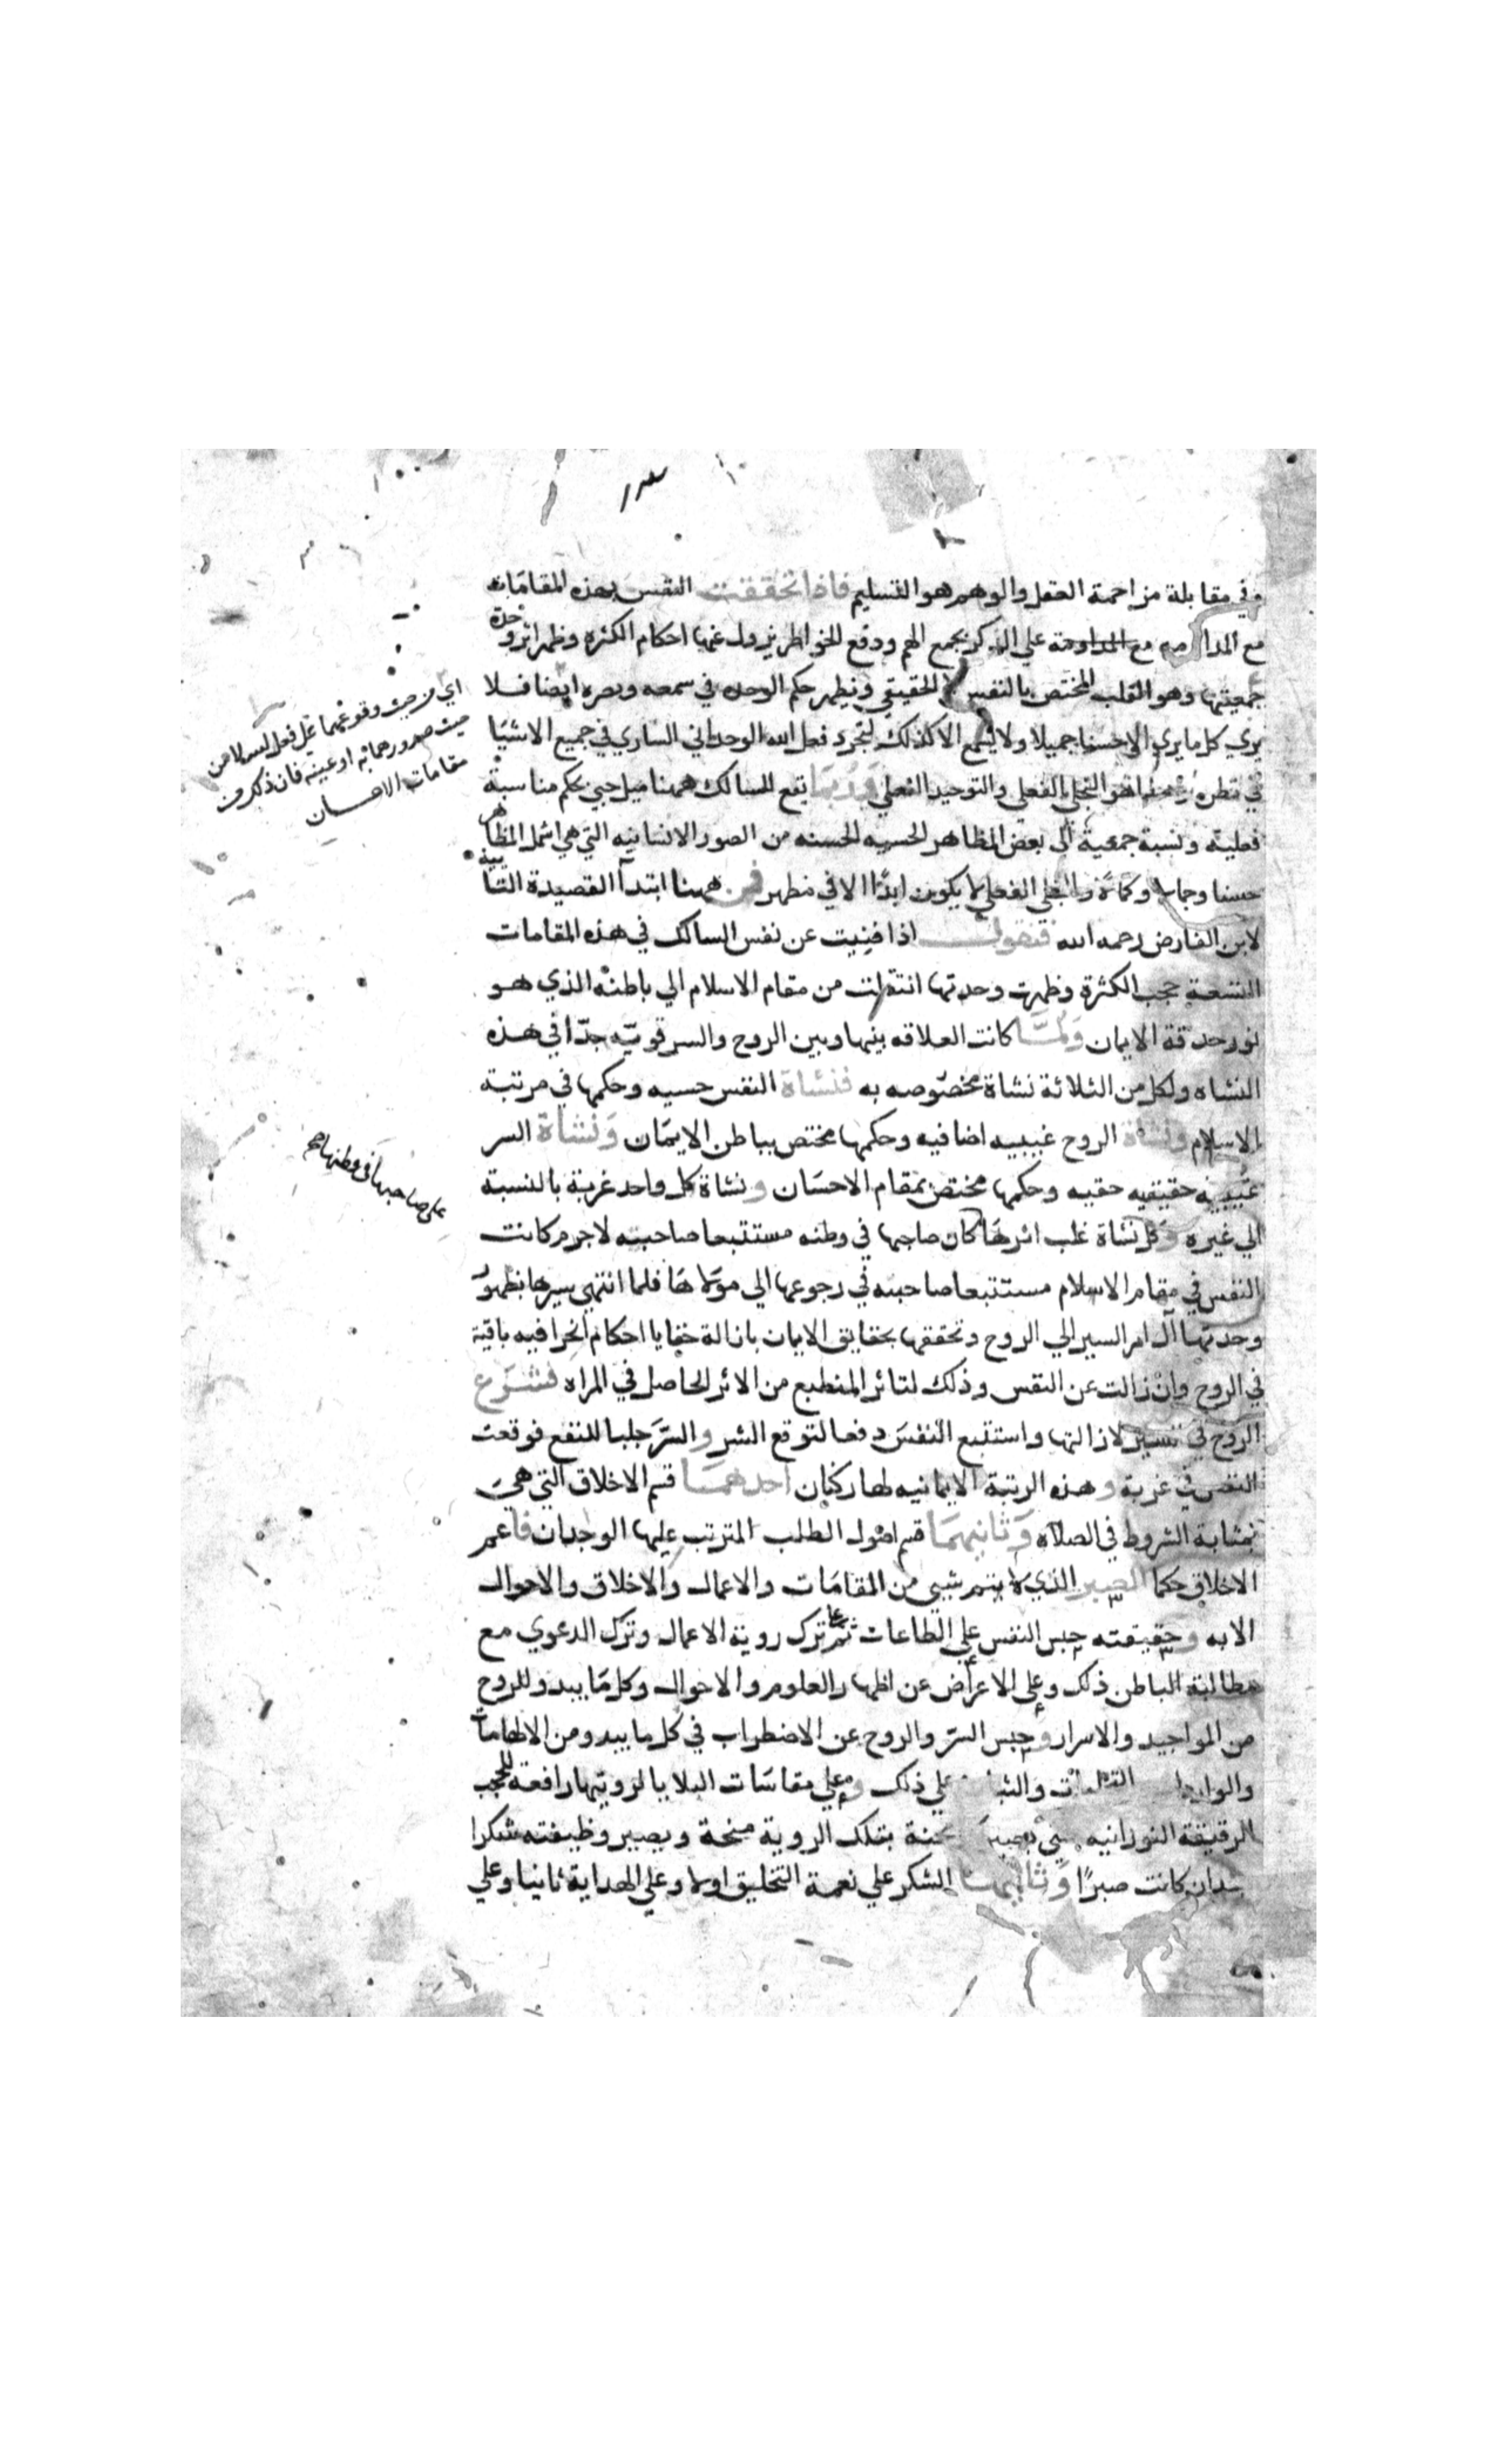 وفي مقابلة مزاحمة العقل والوهم هو التسليم فاذا تحققت النفس بهذه المقامات
مع المداومة على الذكر بجمع الهم ودفع الخواطر يزول عنها احكام الكثرة وظهر اثر وحدة
جمعيتها وهو القلب المختص بالنفس لا الحقيقي ويظهر حكم الوحده في سمعه وبصره ايضا فلا
يري كل ما يري الا حسنا جميلا ولا يسمع الا كذلك لتجرد فعل الله الوحداني الساري في جميع الاشيا
في نظره وهذا هو التجلي الفعلي والتوحيد الفعلي وربما يقع للسالك ههنا ميل حبي بحكم مناسبة
فعلية ونسبة جمعية الي بعض المظاهر الحسيه الحسنه من الصور الانسانيه التي هي اشمل المظاهر
حسنا وجمالا وكمالا والتجلي الفعلي لا يكون ابدًا الا في مظهر فمن ههنا ابتدا القصيدة التائية
لابن الفارض رحمه الله فنقول اذا فنيت عن نفس السالك في هذه المقامات
التسعة حجب الكثرة وظهرت وحدتها انتقلت من مقام الاسلام الي باطنه الذي هو
نور حدقة الايمان ولمّا كانت العلاقه بينها وبين الروح والسر قويّه جدّا في هذه
النشاه ولكل من الثلاثة نشاة مخصوصه به فنشاة النفس حسيه وحكمها في مرتبة
الاسلام ونشاة الروح غيبيه اضافيه وحكمها مختص بباطن الايمان ونشاة السر
غيبيه حقيقيه حقيه وحكمها مختص بمقام الاحسان ونشاة كل واحد غربة بالنسبة
الي غيره وكل نشاة غلب اثرها كان صاحبها في وطنه مستتبعا صاحبته لاجرم كانت
النفس في مقام الاسلام مستتبعا صاحبته في رجوعها الي مولاها فلما انتهي سيرها بظهور
وحدتها آل امر السير الي الروح وتحققها بحقايق الايمان بازالة خفايا احكام انحرافيه باقية
في الروح وان زالت عن النفس وذلك لتاثر المنطبع من الاثر الحاصل في المراه فشرع
الروح في تسيير لازالتها واستتبع النفس دفعا لتوقع الشر والسّر جلبا للنفع فوقعت
النفس في غربة وهذه الرتبة الايمانيه لها ركنان احدهما قسم الاخلاق التي هي
بمثابة الشروط في الصلاه وثانيهما قسم اصول الطلب المترتب عليها الوجدان فاعم
الاخلاق حكما الصبر الذي لا يتم شيي من المقامات والاعمال والاخلاق والاحوال
الا به وحقيقته حبس النفس على الطاعات ثم على ترك روية الاعمال وترك الدعوي مع
مطالبة الباطن ذلك وعلى الاعراض عن اظهار العلوم والاحوال وكل ما يبدو للروح
من المواجيد والاسرار وحبس السرّ والروح عن الاضطراب في كل ما يبدو من الالهامات
والواردات والثبات على ذلك وعلي مقاسات البلايا لرويتها رافعة للحجب
الرقيقة النورانيه محنة بتلك الروية منحة ويصير وظيفته شكرا
بعد ان كانت صبرًا وثانيهما الشكر علي نعمة التخليق اولا وعلي الهداية ثانيا وعلي
اي من حيث وقوعهما محل فعل لا من
حيث صدورهما به او عينه فان ذلك من
مقامات الاحسان
على صاحبها في وطنها